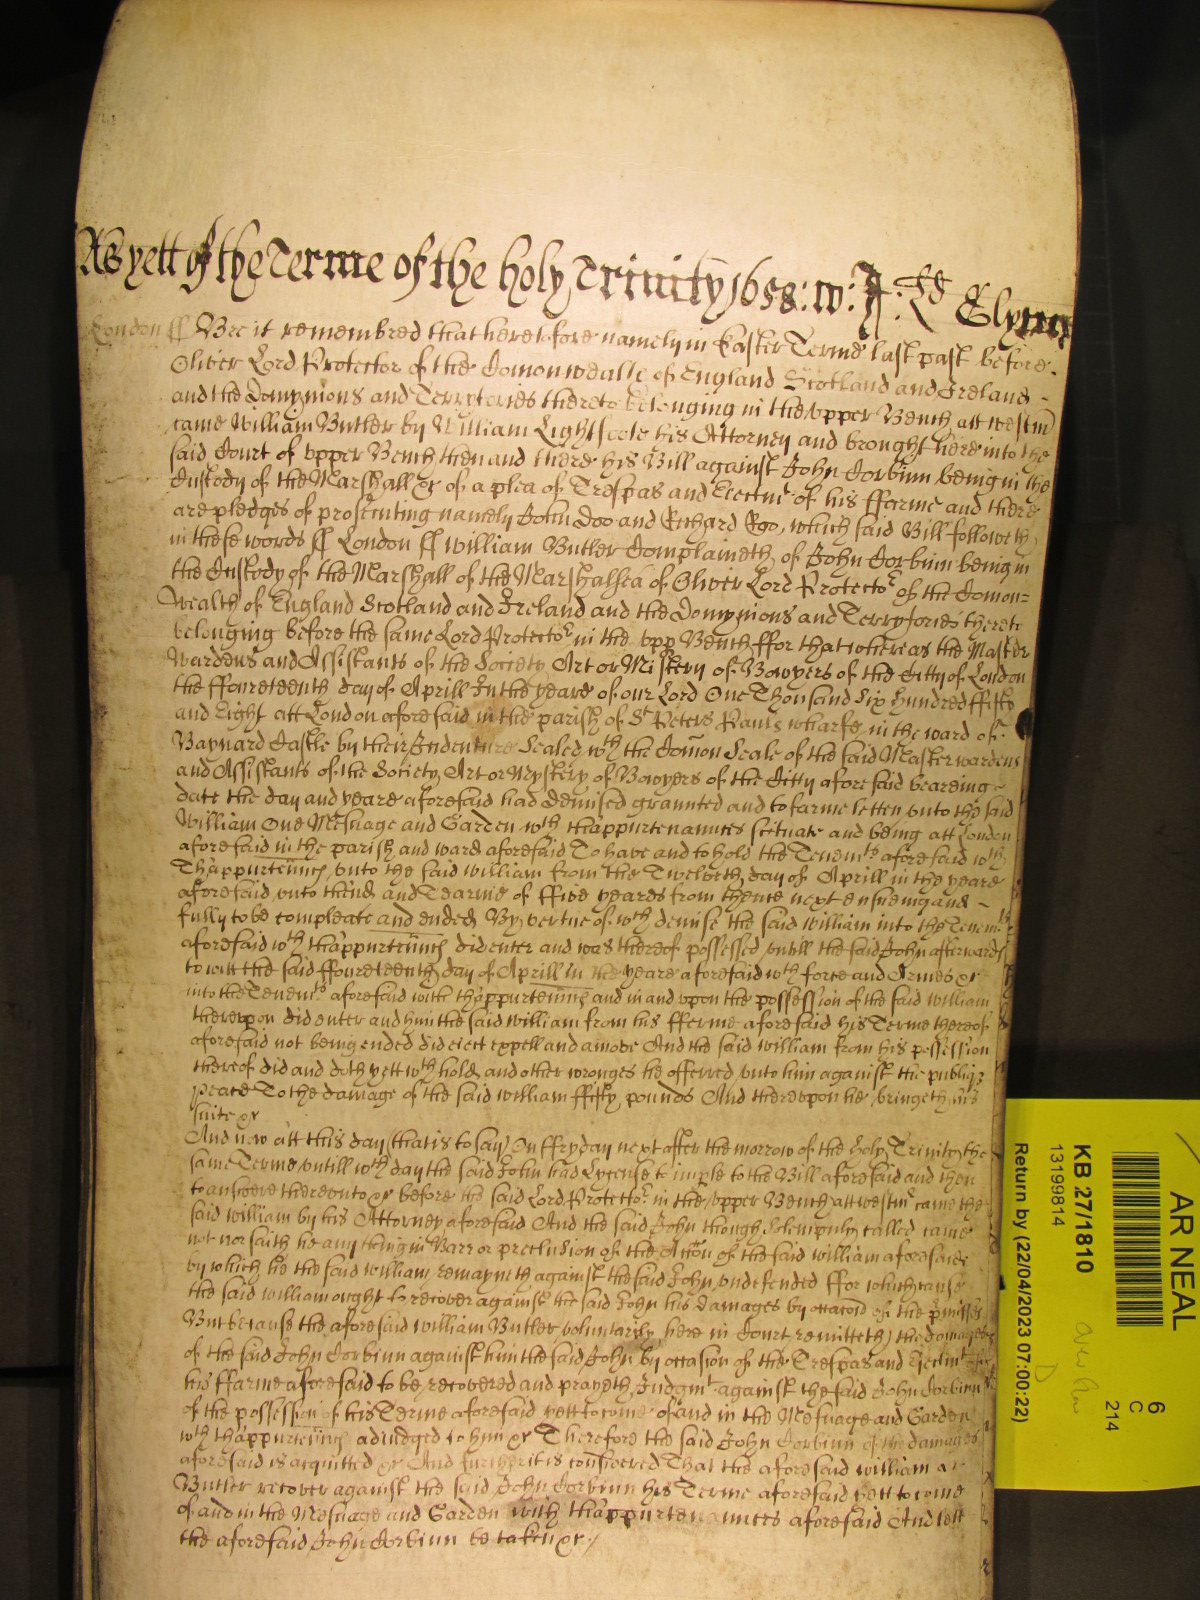 As yett of the Terme of the holy Trinity 1658: w: Glynne
London ss Bee it remembred that heretofore namely in Easter Terme last past before
Oliver Lord Protector of the Comonwealle of England Scotland and Ireland
and the Domynions and Terrytories thereto belonging in the vpper Bench att westm
came William Butler by William Lightfoote his Attorney and brought here into the
said Court of vpper Bench then and there his Bill against John Corbinn being in the
Custody of the Marshall &c of a plea of Trespas and Eiectmt of his fferme and there
are pledges of prosecuting namely John Doo and Richard Roo, which said Bill followeth
in these words ss London ss William Butler Complaineth of John Corbinn being in
the Custody of the Marshall of the Marshalsea of Oliver Lord Protector of the Comon=
Wealth of England Scotland and Ireland and the Domynions and Terrytories thereto
belonging before the same Lord Protector in the vpp Bench ffor that whereas the Master
Wardens and Assistants of the Society Art or Mistery of Bowyers of the Citty of London
the ffoureteenth day of Aprill In the yeare of our Lord One Thousand Six hundred ffifty
and Eight att London aforesaid in the parish of St Peters Pauls wharfe in the ward of
Baynard Castle by their Indenture Sealed wth the Comon Seale of the said Master wardens
and Assistants of the Society Art or Mystery of Bowyers of the Citty aforesaid beareing
date the day and yeare aforesaid had demised graunted and to farme letten vnto the said
William One Mesuage and Garden wth thappurtenannces scituate and being att London
aforesaid in the parish and ward aforesaid To have and to hold the Tenemts aforesaid wth
Thappurtennces vnto the said William from the Twelveth day of Aprill in the yeare
aforesaid vnto thend and Tearme of ffive yeares from thence next ensueing and
fully to be compleate and ended By vertue of wch demise the said William into the Tenemts
aforesaid wth thappurtennces did enter and was thereof possessed vntill the said John afterwards
to witt the said ffoureteenth day of Aprill in the yeare aforesaid wth force and Armes &c
into the Tenemts aforesaid with thappurtennces and in and vpon the possession of the said William
therevpon did enter and him the said William from his fferme aforesaid his Terme thereof
aforesaid not being ended did eiect expell and amove And the said William from his possession
thereof did and doth yett wth hold, and other wronges he offerred vnto him against the publiq
peace To the damage of the said William ffifty pounds And therevpon he bringeth his
suite &c
And now att this day (that is to say) On ffryday next after the morrow of the holy Trinity the
same Terme vntill wch day the said John had Lycense to imple to the Bill aforesaid and then
to answere therevnto &c before the said Lord Protector in the vpper Bench att westmr came the
said William by his Attorney aforesaid And the said John though solempnly called came
not nor saith he any thing in Barr or preclusion of the Accon of the said William aforesaid
by which he the said William remayneth against the said John vndefended ffor which cause
the said William ought to recover against the said John his damages by occacion of the pmisses
But because the aforesaid William Butler voluntarily here in Court remitteth the damages
of the said John Corbinn against him the said John by occasion of the Trespas and Eiectmt of
his fferme aforesaid to be recovered and prayeth Iudgmt against the said John Corbinn
of the possession of his Terme aforesaid yett to come of and in the Mesuage and Garden
wth thappurtennces adiudged to him &c Therefore the said John Corbinn of the damages
aforesaid is acquitted &c And further it is considered That the aforesaid William
Butler recover against the said John Corbinn his Terme aforesaid yett to come
of and in the Mesuage and Garden with thappurtenannces aforesaid And lett
the aforesaid John Corbinn be taken &c /
AR NEAL
KB 27/1810
13199814
Return by (22/04/2023 07:00:22)
6
C
214